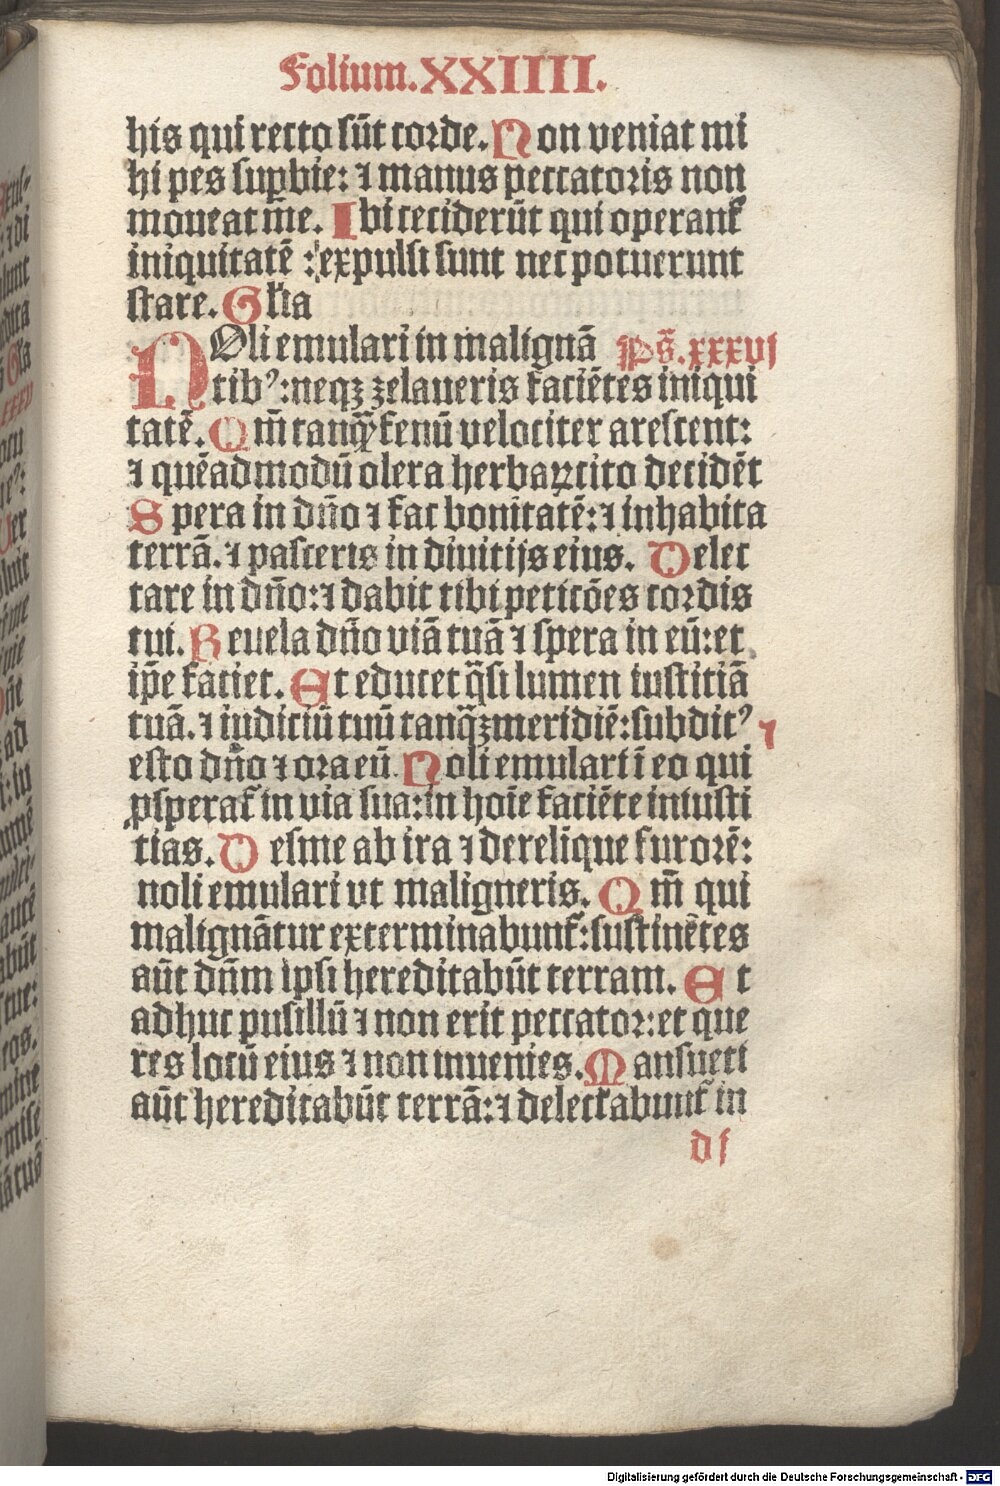 Folium.XXIIII.
his qui recto sūt corde. Non veniat mi
hi pes suꝑbie: ⁊ manus peccatoris non
moueat me̅. Ibi ceciderūt qui operant᷑
iniquitatē : expulsi sunt nec potuerunt
stare. Gl̓ia
NOli emulari in malignā Ps̄.xxxvj
tibꝰ: neqꝫ zelaueris faciētes iniqui
tatē. Qm̄ tanqꝫ fenū velociter arescent:
⁊ quēadmodū olera herbaꝝ cito decidēt
Spera in dn̄o ⁊ fac bonitatē: ⁊ inhabita
terrā. ⁊ pasceris in diuitijs eius. Delec
tare in dn̄o: ⁊ dabit tibi peticōes cordis
tui. Reuela dn̄o viā tuā ⁊ spera in eū: et
ip̄e faciet. Et educet q̄si lumen iustitiā
tuā. ⁊ iudiciū tuū tanqꝫ meridiē: subditꝰ
esto dn̄o ⁊ ora eū. Noli emulari ī eo qui
ꝓsperat᷑ in via sua: in hoīe faciēte iniusti
tias. Desine ab ira ⁊ derelīque furorē:
noli emulari vt maligneris. Qm̄ qui
malignātur exterminabunt᷑: sustinētes
aūt dn̄m ipsi hereditabūt terram. Et
adhuc pusillū ⁊ non erit peccator: et que
res locū eius ⁊ non inuenies. Mansueti
aūt hereditabūt terrā: ⁊ delectabunt᷑ in
dj
Digitalisierung gefördert durch die Deutsche Forschungsgemeinschaft - DFG